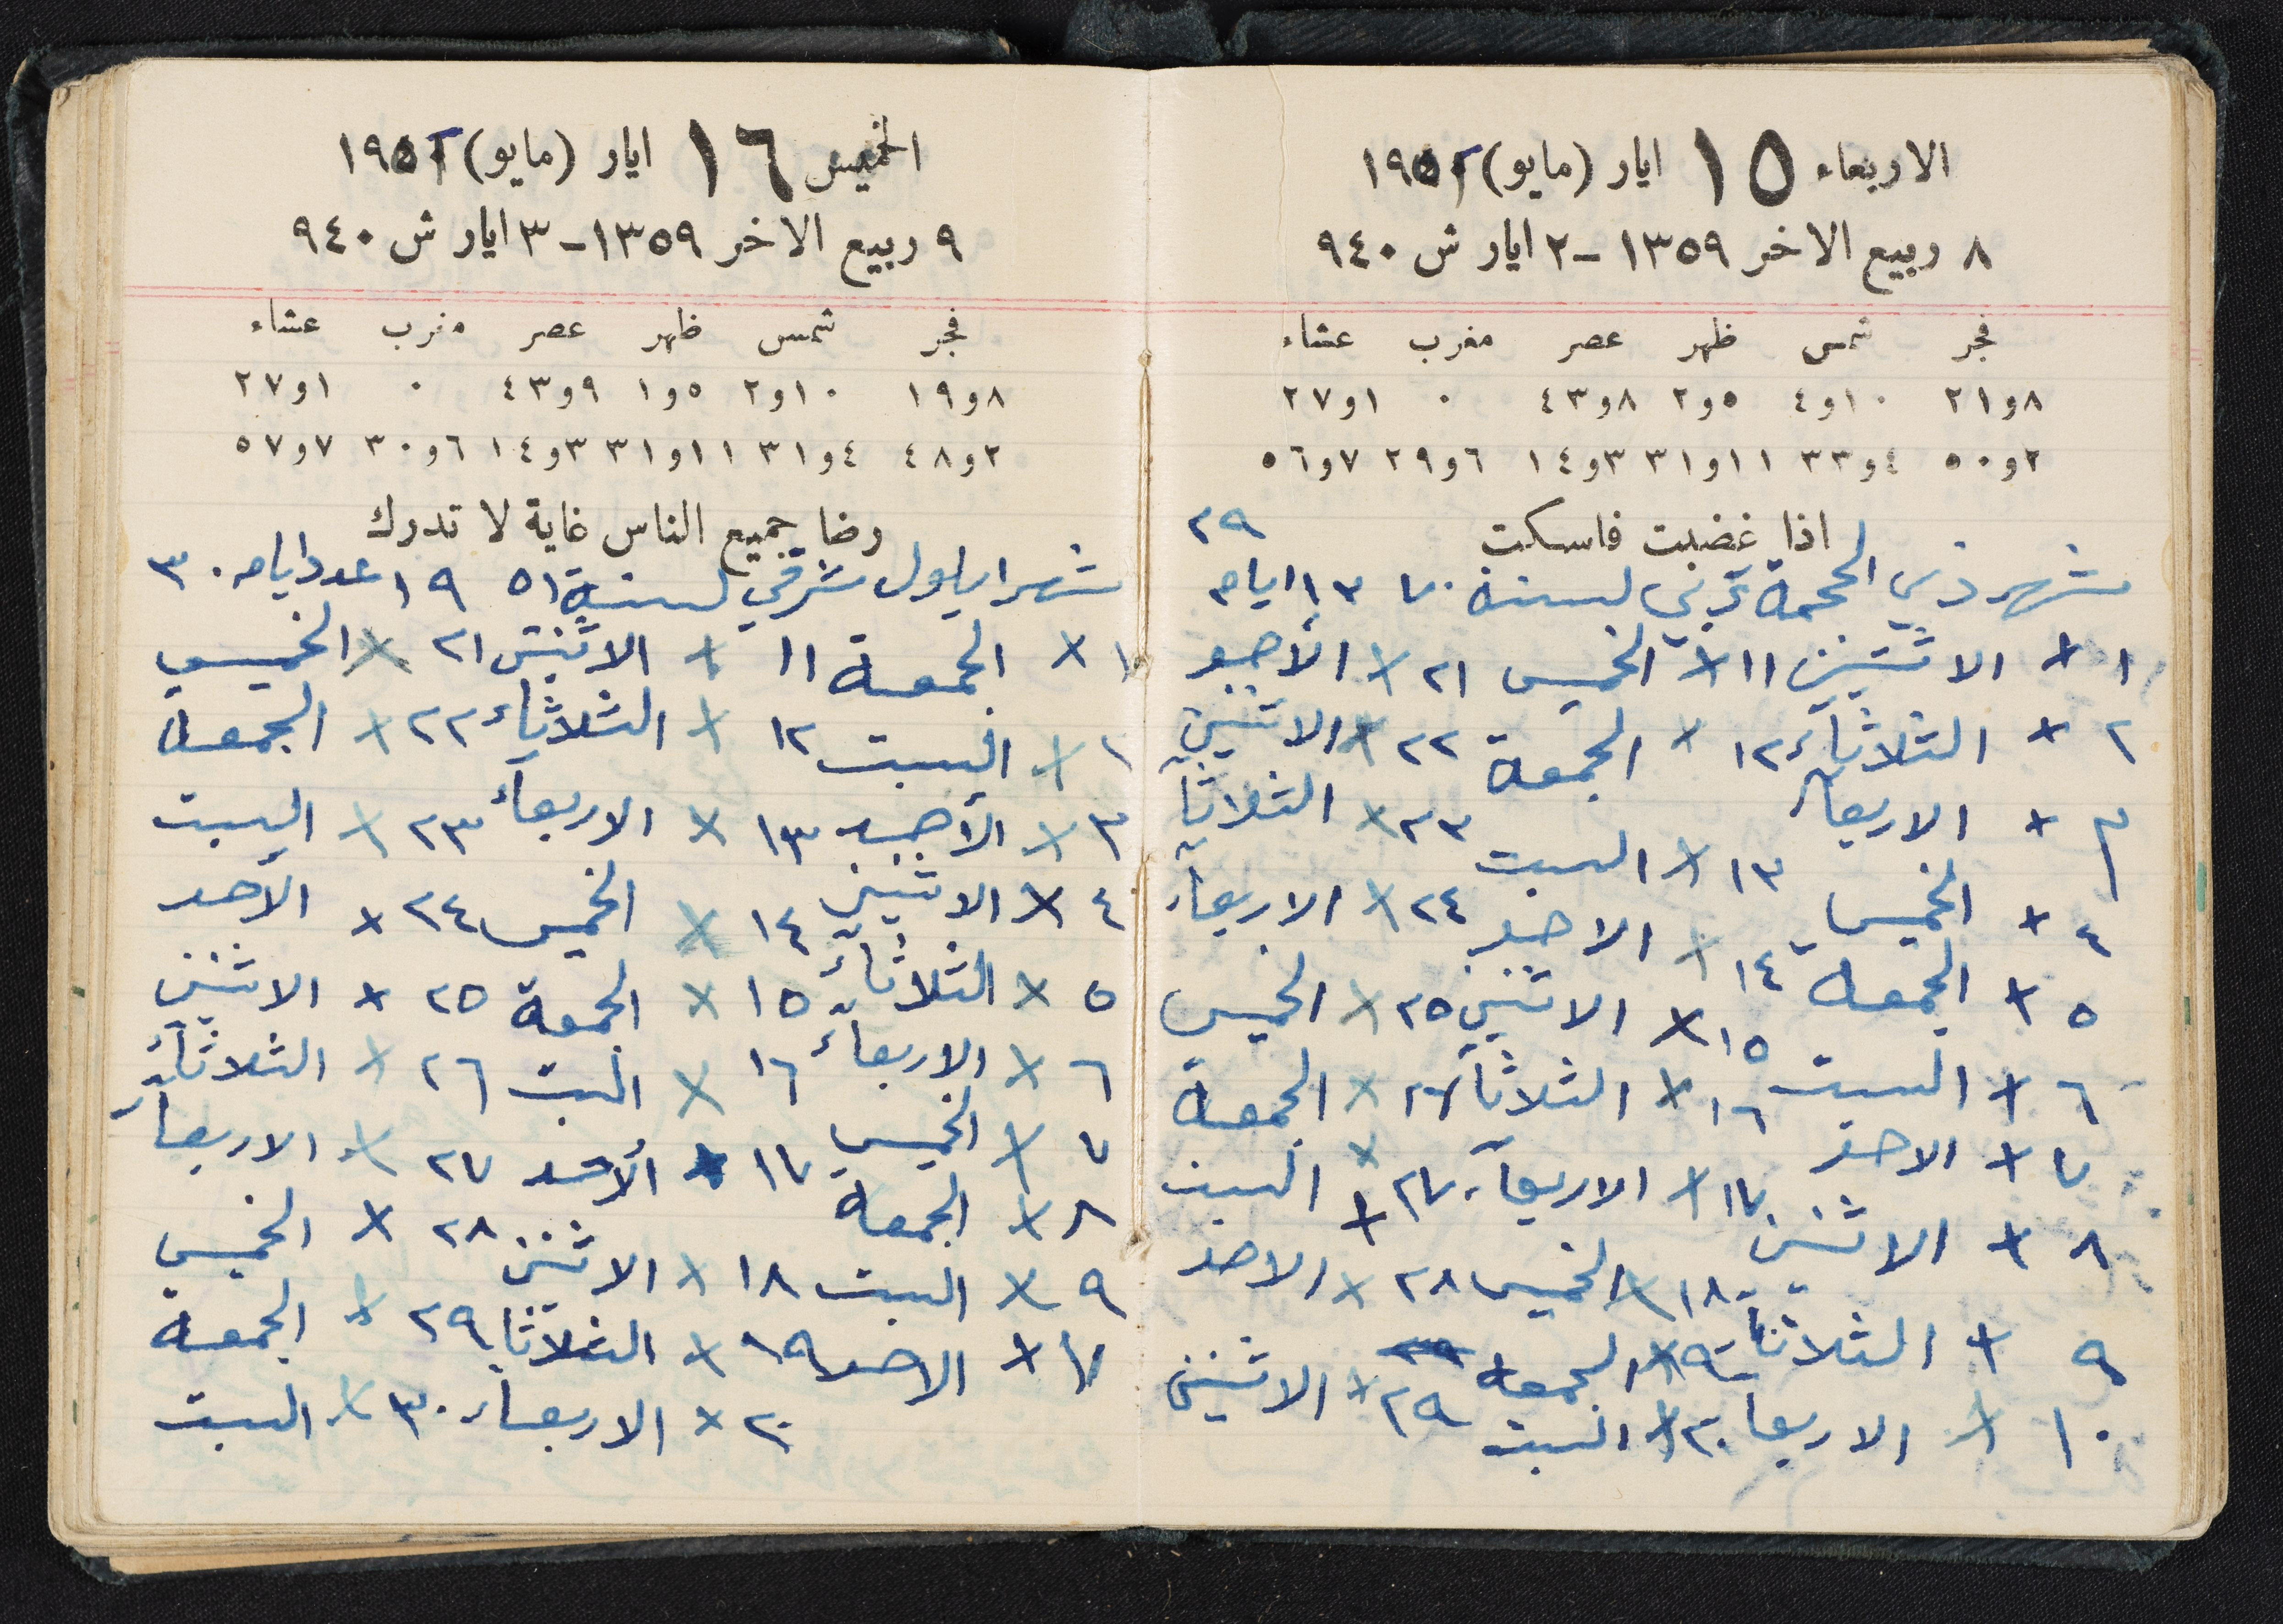 الاربعاء ١٥ ايار (مايو) ١٩٥١
٨ ربيع الاخر ١٣٥٩ - ٢ ايار ش ٩٤٠
فجر شمس ظهر عصر مغرب عشاء
٨و٢١ ١٠و٤ ٥و٢ ٨و٤٣ ٠ ١و٢٧
٢و٥٠ ٤و٣٣ ١١و٣١ ٣و١٤ ٦و٢٩ ٧و٥٦
اذا غضبت فاسكت
٢٩
شهر ذي الحجة عربي لسنة ١٣٧٠ ايام
١ × الاثنين ١١ × الخميس ٢١ × الأحد
٢ × الثلاثاء ١٢ × الجمعة ٢٢ × الاثنين
٣ × الاربعاء ١٣ × السبت ٢٣ × الثلاثا
٤ × الخميس ١٤ × الاحد ٢٤ × الاربعاء
٥ × الجمعة ١٥ × الاثنين ٢٥ × الخميس
٦ × السبت ١٦ × الثلاثا ٢٦ × الجمعة
٧ × الاحد ١٧ × الاربعاء ٢٧ × السبت
٨ × الاثنين ١٨ × الخميس ٢٨ × الاحد
٩ × الثلاثا ١٩ × الجمعة ٢٩ × الاثنين
١٠ × الاربعا ٢٠ × السبت
الخميس ١٦ ايار (مايو) ١٩٥١
٩ ربيع الاخر ١٣٥٩ - ٣ ايار ش ٩٤٠
فجر شمس ظهر عصر مغرب عشاء
٨و١٩ ١٠و٢ ٥و١ ٩و٤٣ ٠ ١و٢٧
٢و٤٨ ٤و٣١ ١١و٣١ ٣و١٤ ٦و٣٠ ٧و٥٧
رضا جميع الناس غاية لا تدرك
شهر ايلول شرقي لسنة ١٩٥١ عدد ايامه ٣٠
١ × الجمعة ١١ × الاثنين ٢١ × الخميس
٢ × السبت ١٢ × الثلاثاء ٢٢ × الجمعة
٣ × الأحد ١٣ × الاربعاء ٢٣ × السبت
٤ × الاثنين ١٤ × الخميس ٢٤ × الأحد
٥ × الثلاثاء ١٥ × الجمعة ٢٥ × الاثنين
٦ × الاربعاء ١٦ × السبت ٢٦ × الثلاثاء
٧ × الخميس ١٧ × الأحد ٢٧ × الاربعاء
٨ × الجمعة ١٨ × الاثنين ٢٨ × الخميس
٩ × السبت ١٩ × الثلاثا ٢٩ × الجمعة
× الاحد ٢٠ × الاربعاء ٣٠ × السبت